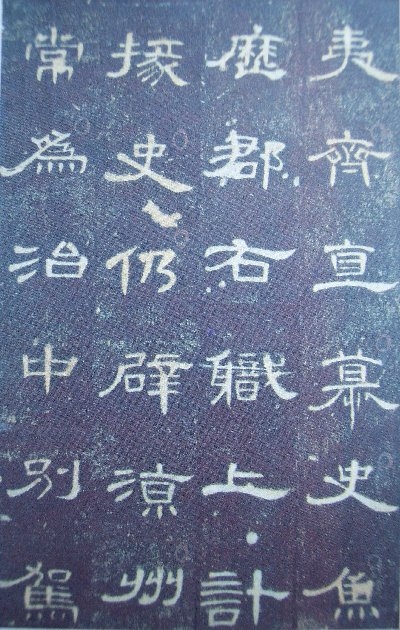 夷齊直慕史魚
歷郡右職上計
掾史仍辟涼州
常為治中別駕